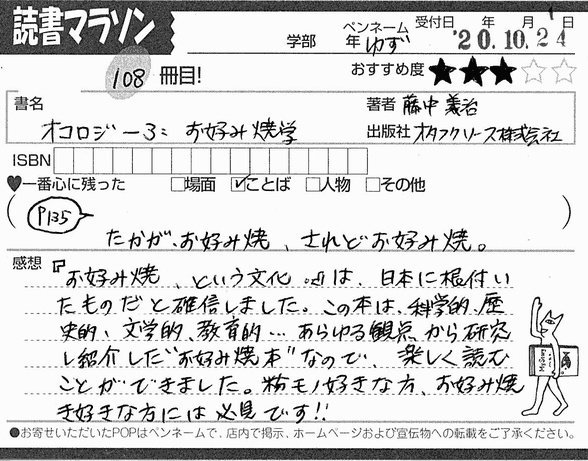 読書マラソン
学部
年
ペンネーム
ゆず
受付日 年 月 日
'20.10.24
108 冊目!
おすすめ度 ★★★☆☆
書名
オコロジー3: お好み焼学
著者 藤中義治
出版社 オタフクソース株式会社
ISBN
♥一番心に残った □場面 ☑ことば □人物 □その他
P135
たかが、お好み焼、されどお好み焼。
感想
『お好み焼、という文化。』は、日本に根付い
たものだと確信しました。この本は、科学的、歴
史的、文学的、教育的…あらゆる観点から研究
し紹介した"お好み焼本"なので、楽しく読む
ことができました。粉モノ好きな方、お好み焼
き好きな方には必見です!!
●お寄せいただいたPOPはペンネームで、店内で掲示、ホームページおよび宣伝物への転載をご了承ください。